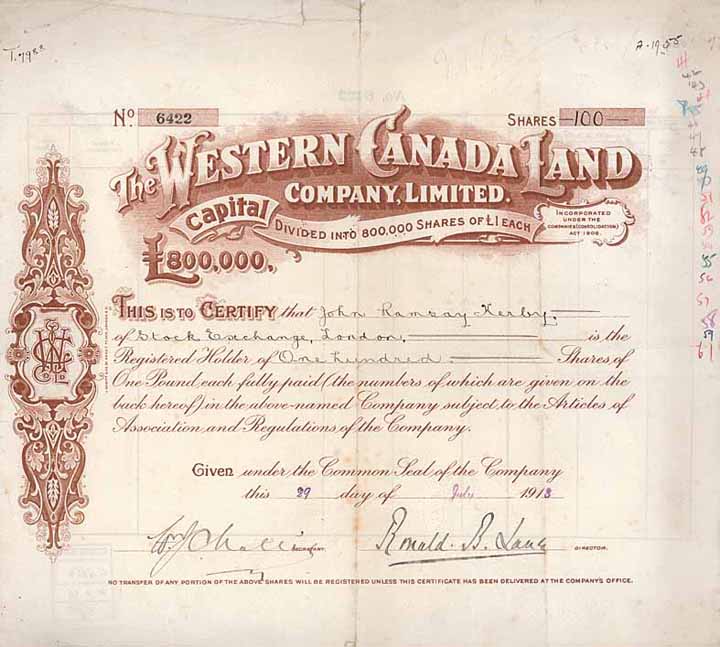 T. 7988
A. 1955
Nº 6422 SHARES —100—
The WESTERN CANADA LAND
COMPANY, LIMITED.
Capital DIVIDED INTO 800,000 SHARES OF £1 EACH
£800,000,
INCORPORATED
UNDER THE
COMPANIES (CONSOLIDATION)
ACT 1908.
THIS IS TO CERTIFY that John Ramsay Kerby
of Stock Exchange, London, is the
Registered Holder of One hundred Shares of
One Pound each fully paid (the numbers of which are given on the
back hereof) in the above-named Company subject to the Articles of
Association and Regulations of the Company.
Given under the Common Seal of the Company
this 29 day of July 1913
SECRETARY.
Ronald. B. DIRECTOR.
NO TRANSFER OF ANY PORTION OF THE ABOVE SHARES WILL BE REGISTERED UNLESS THIS CERTIFICATE HAS BEEN DELIVERED AT THE COMPANY'S OFFICE.